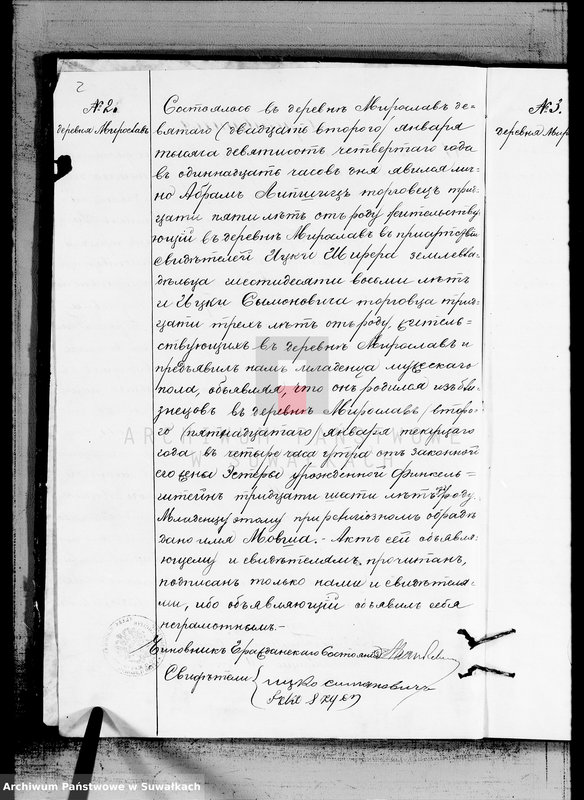 2
№ 2.
деревня Мирославъ
Состоялось въ деревнѣ Мирославъ де-
вятаго (двадцать второго) января
тысяча девятисотъ четвертаго года
въ одиннадцать часовъ дня явился лич-
но Абрамъ Липшицъ торговецъ трид-
цати пяти лѣтъ отъ роду жительству-
ющій въ деревнѣ Мирославъ въ присутствіи
свидѣтелей Ицки Шифера землевла-
дѣльца шестидесяти восьми лѣтъ
и Ицки Сымоновича торговца трид-
цати трехъ лѣтъ отъ роду, житель-
ствующихъ въ деревнѣ Мирославъ и
предъявилъ намъ младенца мужескаго
пола, объявляя, что онъ родился изъ близ-
знецовъ въ деревнѣ Мирославъ второ-
го (пятнадцатаго) января текущаго
года въ четыре часа утра отъ законной
его жены Эстеры урожденной Финкель-
штейнъ тридцати шести лѣтъ отъ роду.
Младенцу этому при религіозномъ обрядѣ
дано имя Мовша. - Актъ сей объявля-
ющему и свидѣтелямъ прочитанъ,
подписанъ только нами и свидѣтеля-
ми, ибо объявляющій объявилъ себя
неграмотнымъ. -
Чиновникъ Гражданскаго Состоянія
Свидѣтели { Ицко Симановичъ
№ 3.
деревня Миро
ARCHIWUM PAŃSTWOWE
W SUWAŁKACH
Archiwum Państwowe w Suwałkach